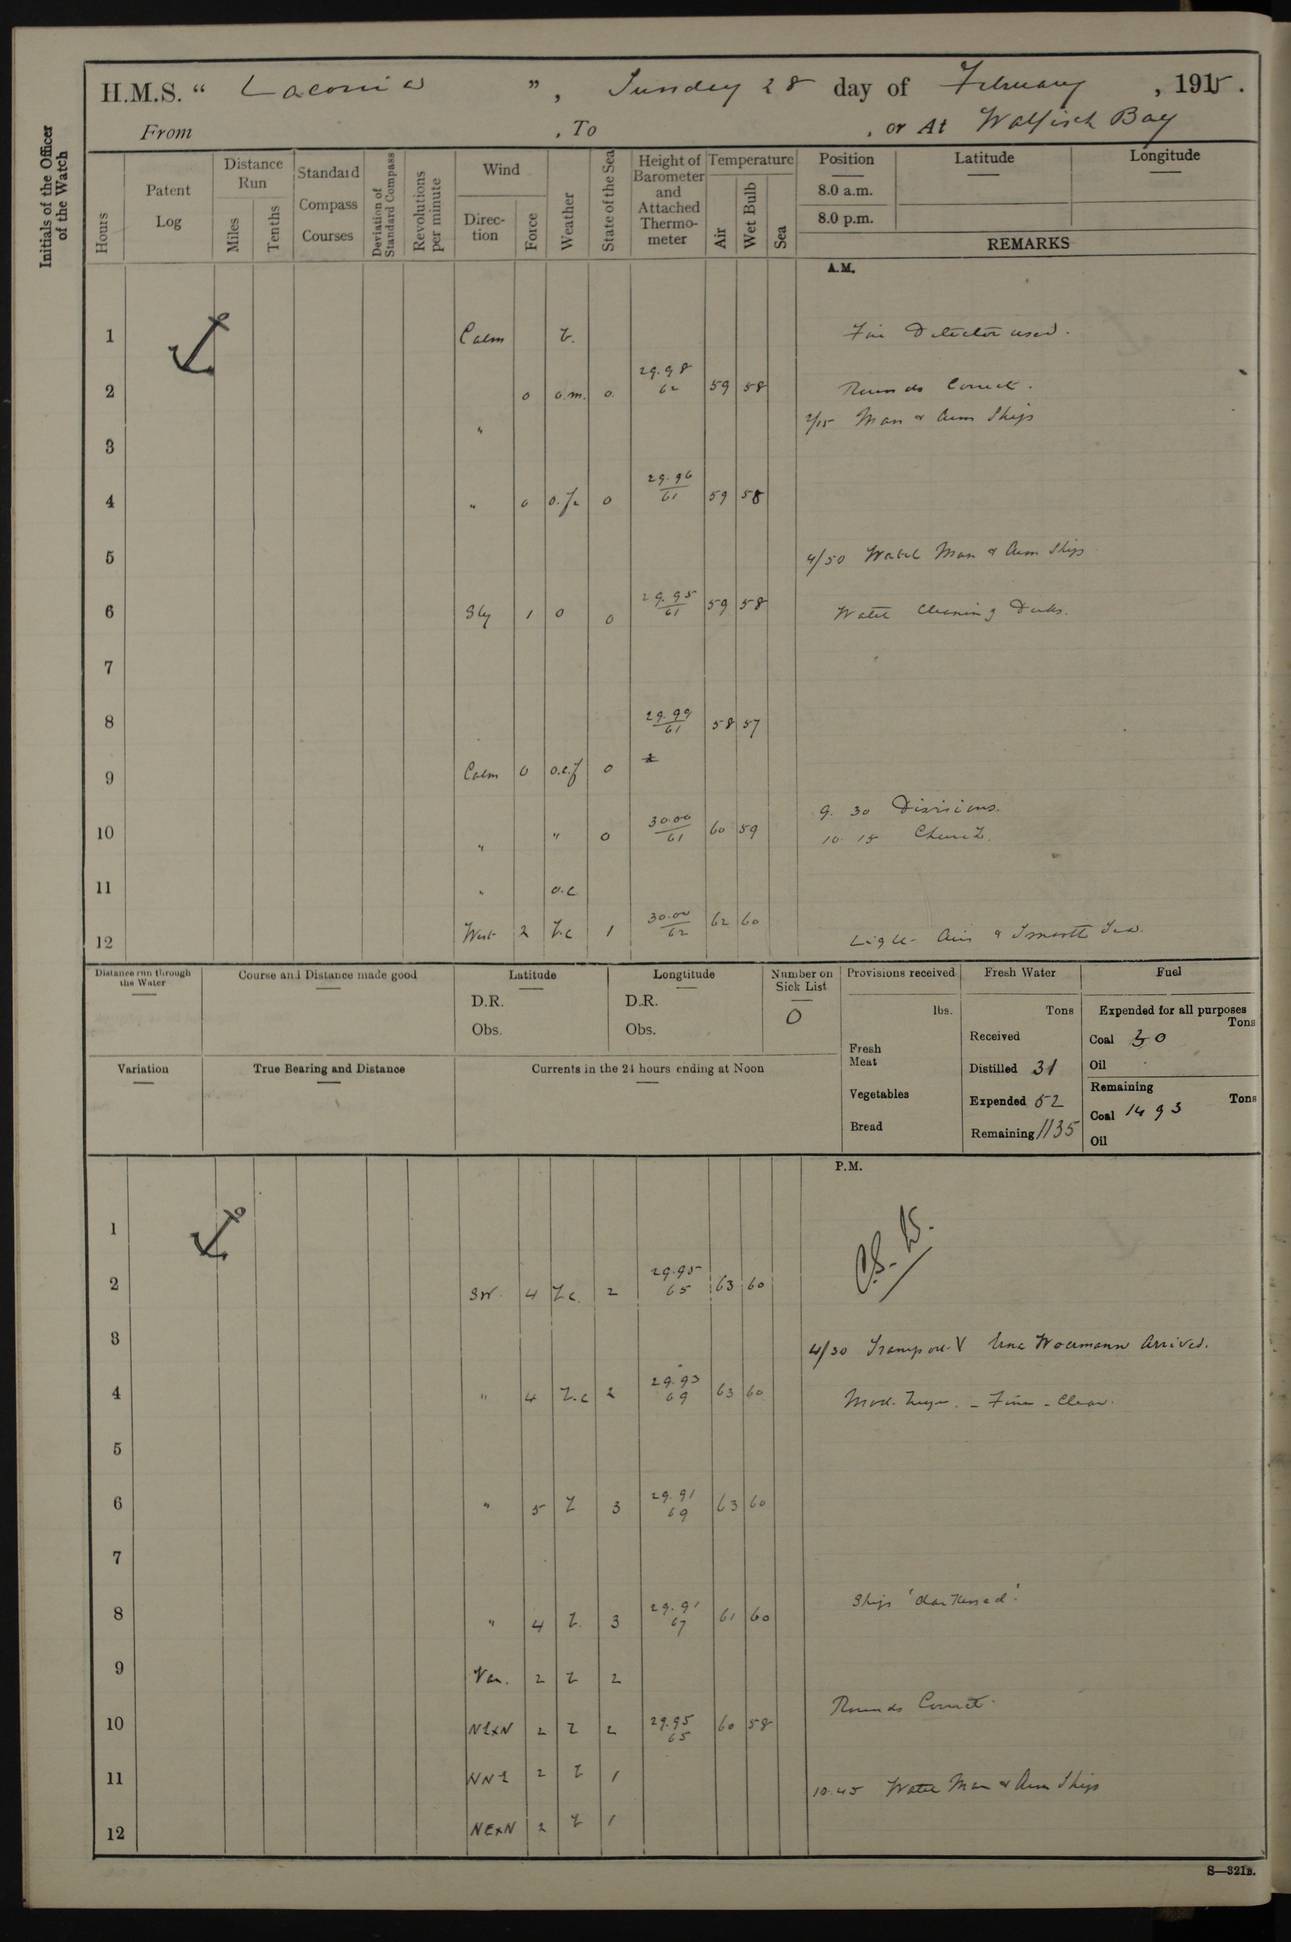 H.M.S. “ Laconia ”, Sunday 28 day of February, 1915.
From , To , or At Walfisch Bay
Initials of the Officer of the Watch
Hours
Patent Log
Distance Run
Miles
Tenths
Standard Compass Courses
Deviation of Standard Compass
Revolutions per minute
Wind
Direction
Force
Weather
State of the Sea
Height of Barometer and Attached Thermometer
Temperature
Air
Wet Bulb
Sea
Position
8.0 a.m.
8.0 p.m.
Latitude
Longitude
REMARKS
A.M.
1 Calm b. Fire Detector used.
2 0 o.m. 0. 29.98 62 59 58 Rounds Correct.
2/15 Man & Arm Ships
3 "
4 " 0 0 29.96 61 59 58
5 4/50 Watch Man & Arm Ships
6 Sly 1 o 0 29.95 61 59 58 Watch Cleaning Decks.
7
8 29.99 61 58 57
9 Calm 0 o.c.f 0
9. 30 Divisions.
10 " " 0 30.00 61 60 59 10. 15 Church.
11 " o.c
12 West 2 b.c 1 30.00 62 62 60 Light Airs & Smooth Sea.
Distance run through the Water
Course and Distance made good
Latitude
D.R.
Obs.
Longtitude
D.R.
Obs.
Number on Sick List
0
Provisions received
lbs.
Fresh Meat
Vegetables
Bread
Fresh Water
Tons
Received
Distilled 31
Expended 52
Remaining 1135
Fuel
Expended for all purposes
Tons
Coal 30
Oil
Remaining
Tons
Coal 1493
Oil
Variation
True Bearing and Distance
Currents in the 24 hours ending at Noon
P.M.
1
2 SW. 4 b.c. 2 29.95 65 63 60
3 4/30 Transport Erna Woermann Arrived.
4 " 4 b.c 2 29.93 69 63 60 Mod. breeze. - Fine - Clear.
5
6 " 5 b 3 29.91 69 63 60
7
8 " 4 b. 3 29.91 67 61 60 Ships 'darkened'.
9 Var. 2 b 2
10 NExN 2 b 2 29.95 65 60 58 Rounds Correct.
11 NNE 2 b 1 10.45 Watch Man & Arm Ships
12 NExN 2 b 1
S—321B.